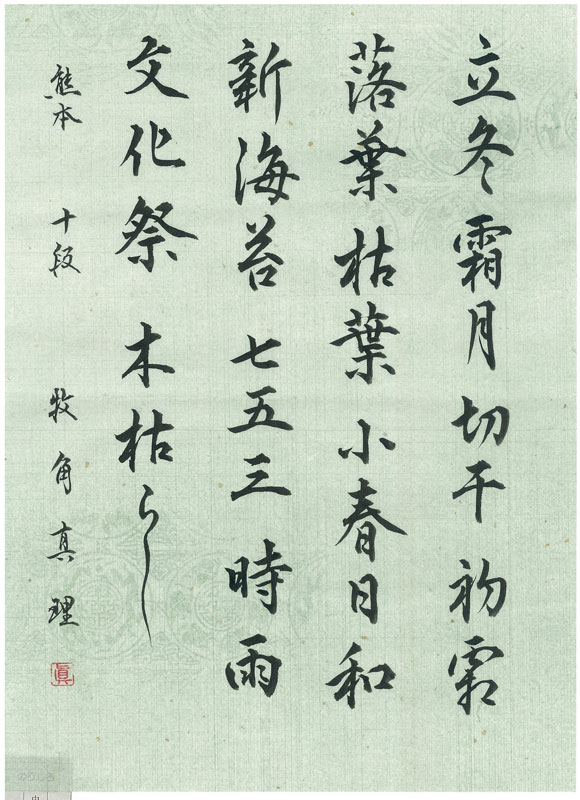 立冬 霜月 切干 初霜
落葉 枯葉 小春日和
新海苔 七五三 時雨
文化祭 木枯らし
熊本 十段 牧角真理
眞